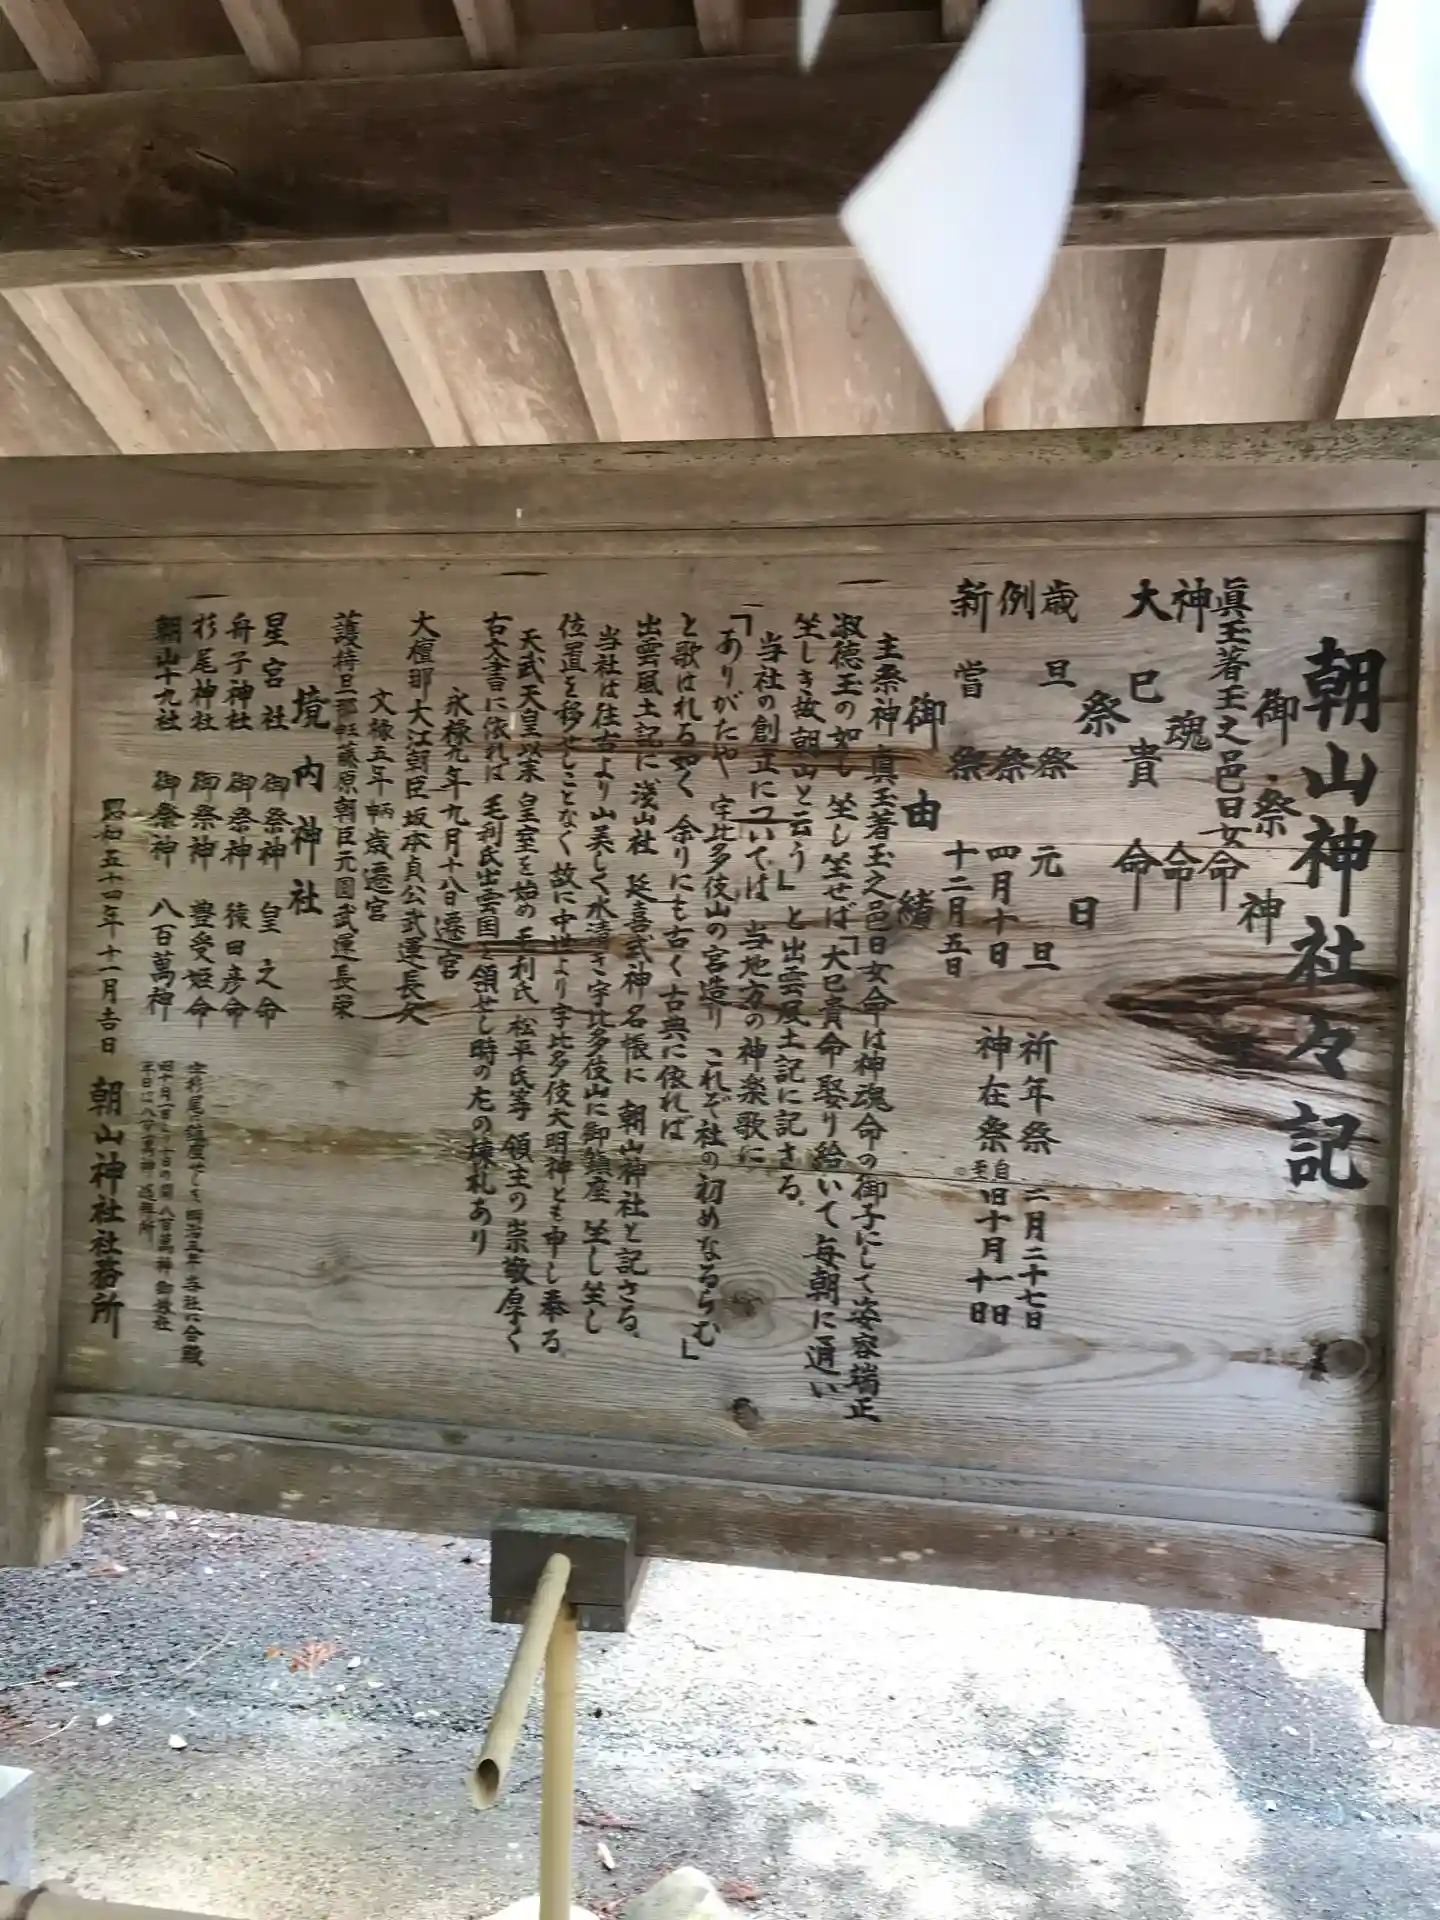 朝山神社々記
御祭神
眞玉著玉之邑日女命
神魂命
大巳貴命
祭日
歳旦祭 元旦 祈年祭 二月二十七日
例祭 四月十日 神在祭 自旧十月一日 至十日
新嘗祭 十二月五日
御由緒
主祭神眞玉著玉之邑日女命は神魂命の御子にして姿容端正
淑徳玉の如し 坐し坐せば「大巳貴命娶り給いて毎朝に通い
坐しき故朝山と云う」と出雲風土記に記さる。
当社の創立については 当地方の神楽歌に
「ありがたや 宇比多伎山の宮造り これぞ社の初めなるらむ」
と歌はれる如く 余りにも古く古典に依れば
出雲風土記に浅山社 延喜式神名帳に 朝山神社と記さる。
当社は往古より山美しく水清き宇比多伎山に御鎮座 坐し坐し
位置を移せしことなく 故に中世より宇比多伎大明神とも申し奉る
天武天皇以来 皇室を始め 毛利氏 松平氏等 領主の崇敬厚く
古文書に依れば 毛利氏出雲国を領せし時の左の棟札あり
永禄九年九月十八日遷宮
大檀那大江朝臣坂本貞公武運長久
文禄五年 歳遷宮
護持旦那 藤原朝臣元国武運長栄
境内神社
星宮社 御祭神 皇之命
舟子神社 御祭神 猿田彦命
杉尾神社 御祭神 豊受姫命
朝山十九社 御祭神 八百萬神
字杉尾に鎮座せしを明治五年当社に合殿
旧十月一日より十日の間 八百萬神 御参社
平日は八百萬神 遥拝所
昭和五十四年十一月吉日 朝山神社社務所